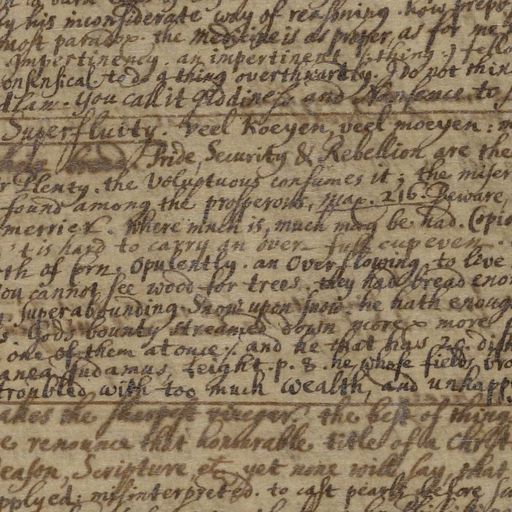 by his inconsiderate way of reasoning how prepo
most paradox. the medicine is as proper, as for me t
Impertinency. an impertinent thing. J fello
onsensical to do a thing overthwartly. J do not thin
I am. You call it Giddiness and Nonsence to
Superfluity. veel Koeyen, veel moeyen: m
Pride, Security & Rebellion are the
r Plenty. the Voluptuous consumes it; the miser
found among the prosperous, 216. Beware,
merrier. where much is, much may be had. Copio
t is hard to carry an over full cup even.
rth of corn. Opulently. an Overflowing to live
ou cannot see wood for trees. they had bread enou
Superabounding Snow upon snow. he hath enoug
s. Gods bounty streamed down more & more
one of them at once / and he that has 20. dish
Leight. p. 8. he whose field bro
troubled with too much wealth, and unhapp
akes the sharpest vinegar the best of things
e renounce that honourable title of a Christ
eason, Scripture, & yet none will say that
pplyed: misinterpreted. to cast pearls before sw